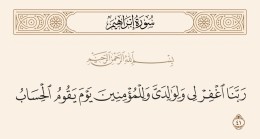 سُورَةُ إِبْرَاهِيمَ
بِسْمِ اللَّهِ الرَّحْمَٰنِ الرَّحِيمِ
رَبَّنَا ٱغْفِرْ لِى وَلِوَٰلِدَىَّ وَلِلْمُؤْمِنِينَ يَوْمَ يَقُومُ ٱلْحِسَابُ
٤١